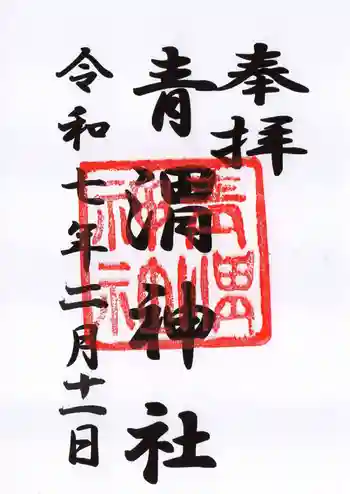 奉拝
青渭神社
令和七年二月十一日
青渭神社